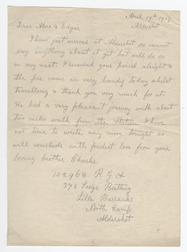 April 19th 1917
Aldershot
Dear Alice & Edgar
I have just arrived at Aldershot so cannot
say anything about it yet but will do so
in my next. I received your parcel alright &
the pie came in very handy to day whilst
travelling & thank you very much for it.
We had a very pleasant journey with about
two miles walk from the Station. I have
not time to write any more tonight so
will conclude with fondest love from your
loving brother Charlie
102968 R.G.A
Siege Battery
Lille Barracks
North Camp
Aldershot